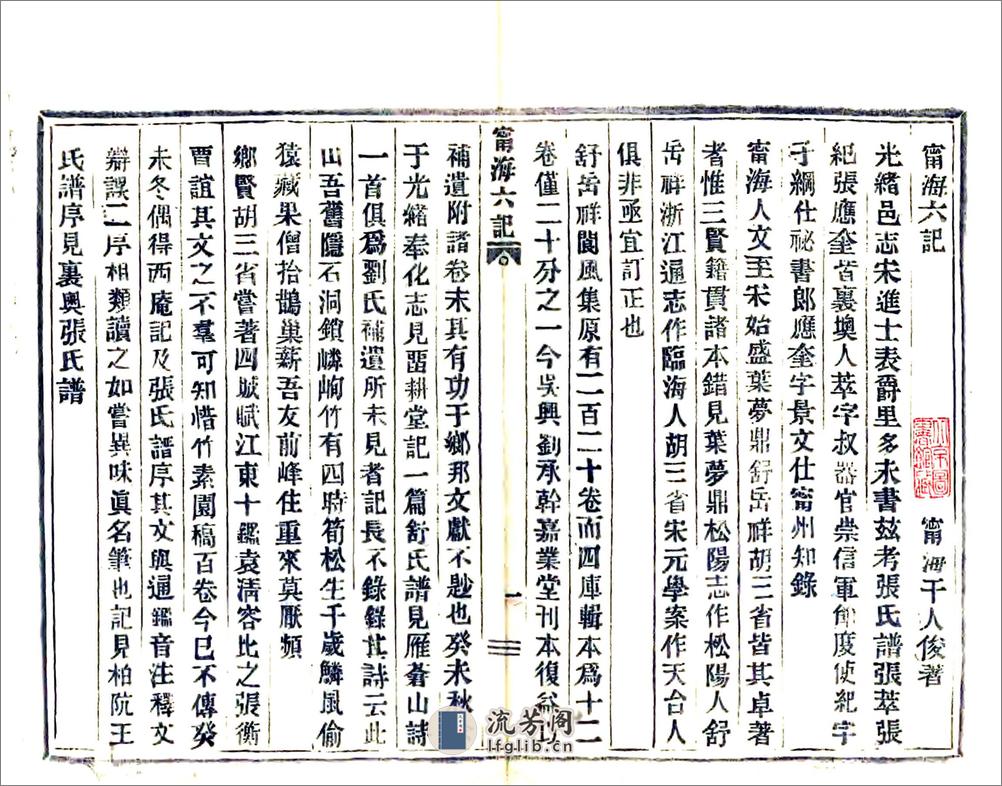 甯海六記
甯海干人俊著
光緒邑志宋進士表爵里多未書茲考張氏譜張萃張
紀張應奎皆裏墺人萃字叔器官崇信軍節度使紀字
子綱仕祕書郎應奎字景文仕甯州知錄
甯海人文至宋始盛葉夢鼎舒岳祥胡三省皆其卓著
者惟三賢籍貫諸本錯見葉夢鼎松陽志作松陽人舒
岳祥浙江通志作臨海人胡三省宋元學案作天台人
俱非亟宜訂正也
舒岳祥閬風集原有二百二十卷而四庫輯本爲十二
卷僅二十分之一今吳興劉承幹嘉業堂刊本復益以
甯海六記
一
補遺附諸卷末其有功于鄉邦文獻不尠也癸未秋
于光緒奉化志見畱耕堂記一篇舒氏譜見雁蒼山詩
一首俱爲劉氏補遺所未見者記長不錄錄其詩云此
山吾舊隱石洞鎖嶙峋竹有四時筍松生千歲鱗風偷
猿藏果僧拾鵲巢薪吾友前峰住重來莫厭頻
鄉賢胡三省嘗著四城賦江東十鑑袁淸容比之張衡
賈誼其文之不羣可知惜竹素園稿百卷今已不傳癸
未冬偶得西庵記及張氏譜序其文與通鑑音注釋文
辯誤二序相類讀之如嘗異味眞名筆也記見柏阬王
氏譜序見裏奧張氏譜
流芳阁
lfglib.cn